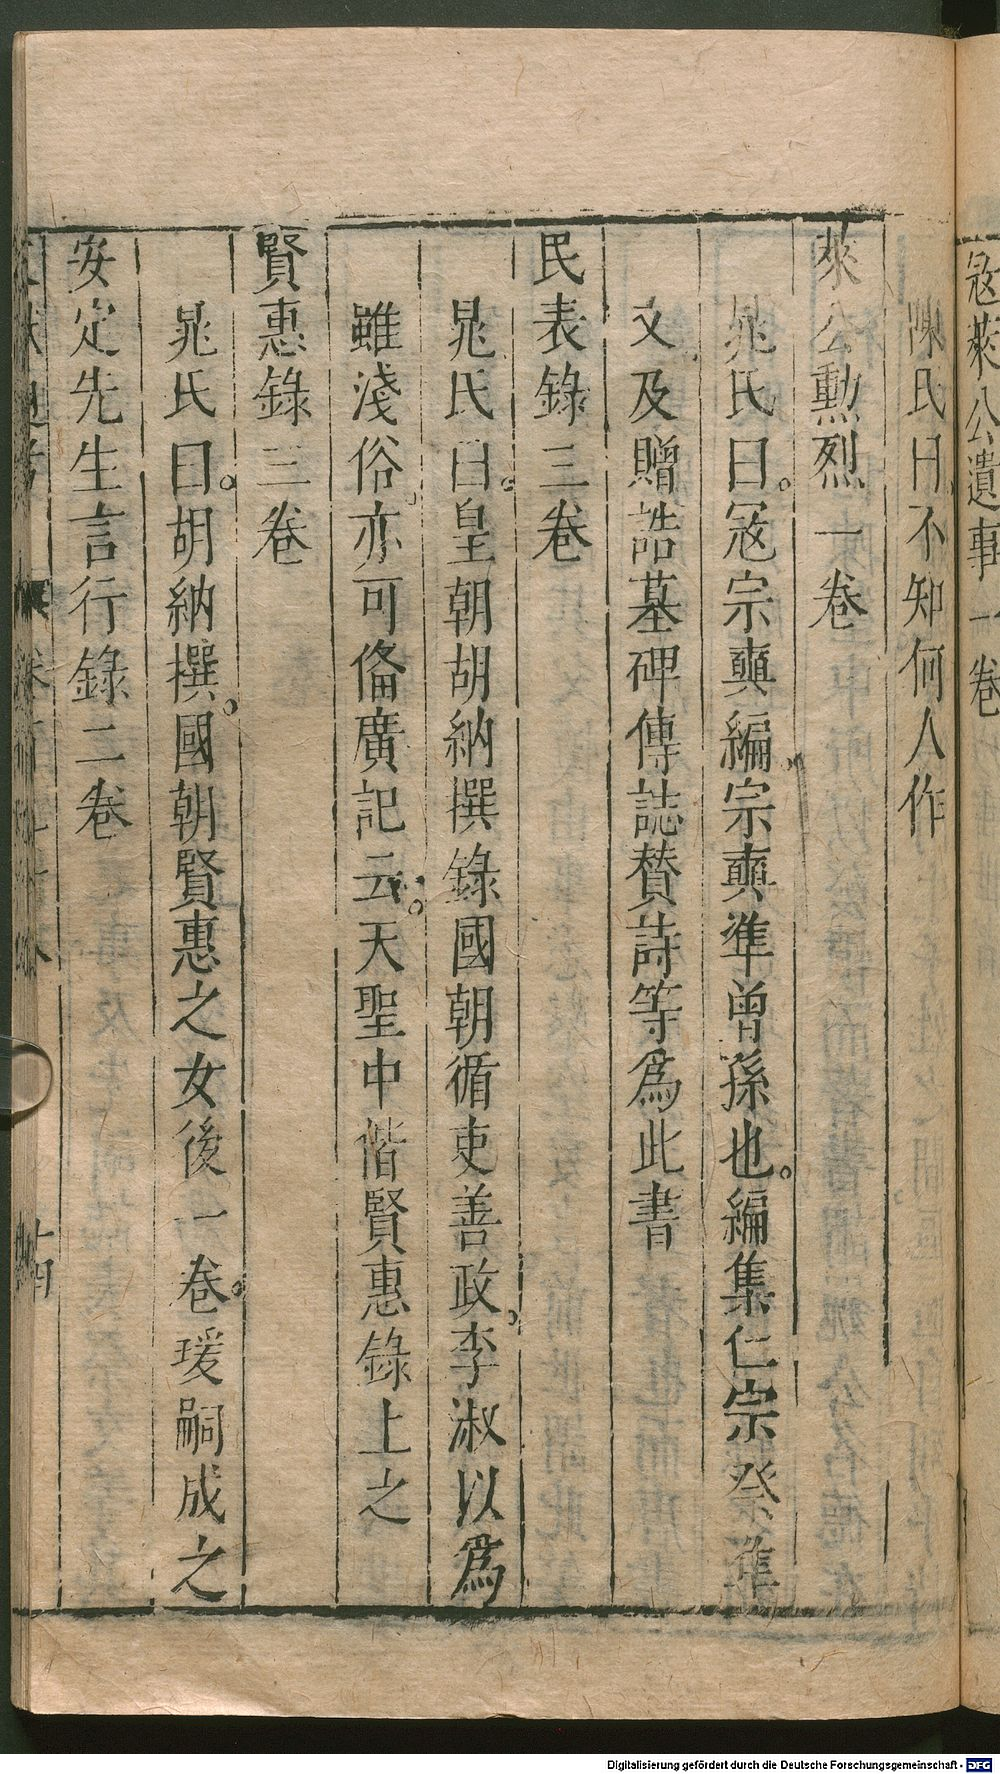 寇萊公遺事一卷
陳氏曰不知何人作
萊公勳烈一卷
晁氏曰。寇宗奭編宗奭準曾孫也。編集仁宗祭準
文及贈誥墓碑傳誌賛詩等爲此書
民表錄三卷
晁氏曰。皇朝胡納撰錄國朝循吏善政。李淑以爲
雖淺俗。亦可俻廣記云。天聖中偕賢惠錄上之
賢惠錄三卷
晁氏曰。胡納撰。國朝賢惠之女後一卷。瑗嗣成之
安定先生言行錄二卷
Digitalisierung gefördert durch die Deutsche Forschungsgemeinschaft - DFG